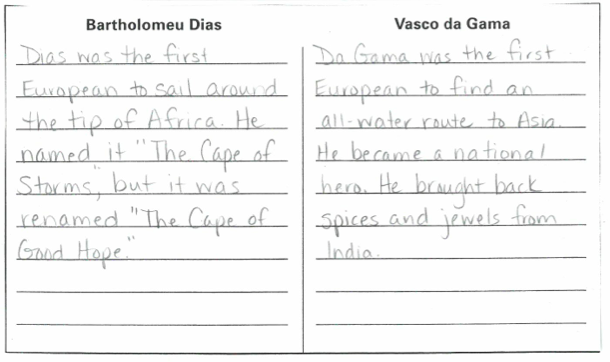 Bartholomeu Dias
Dias was the first
European to sail around
the tip of Africa. He
named it "The Cape of
Storms," but it was
renamed "The Cape of
Good Hope."
Vasco da Gama
Da Gama was the first
European to find an
all-water route to Asia.
He became a national
hero. He brought back
spices and jewels from
India.